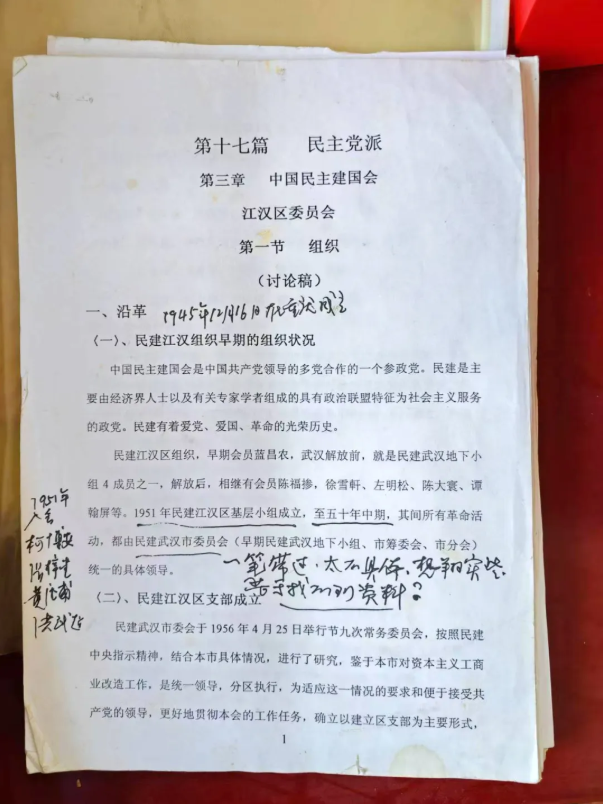 第十七篇 民主党派
第三章 中国民主建国会
江汉区委员会
第一节 组织
（讨论稿）
一、沿革 1945年12月16日在重庆成立
（一）、民建江汉组织早期的组织状况
中国民主建国会是中国共产党领导的多党合作的一个参政党。民建是主
要由经济界人士以及有关专家学者组成的具有政治联盟特征为社会主义服务
的政党。民建有着爱党、爱国、革命的光荣历史。
民建江汉区组织，早期会员蓝昌农，武汉解放前，就是民建武汉地下小
组4成员之一，解放后，相继有会员陈福掺，徐雪軒、左明松、陈大寰、谭
翰屏等。1951年民建江汉区基层小组成立，至五十年中期，其间所有革命活
动，都由民建武汉市委员会（早期民建武汉地下小组、市筹委会、市分会）
统一的具体领导。
1951年
入会
一笔带过，太不具体，想写的实些
是否找不到资料？
（二）、民建江汉区支部成立
民建武汉市委会于1956年4月25日举行节九次常务委员会，按照民建
中央指示精神，结合本市具体情况，进行了研究，鉴于本市对资本主义工商
业改造工作，是统一领导，分区执行，为适应这一情况的要求和便于接受共
产党的领导，更好地贯彻本会的工作任务，确立以建立区支部为主要形式，
1